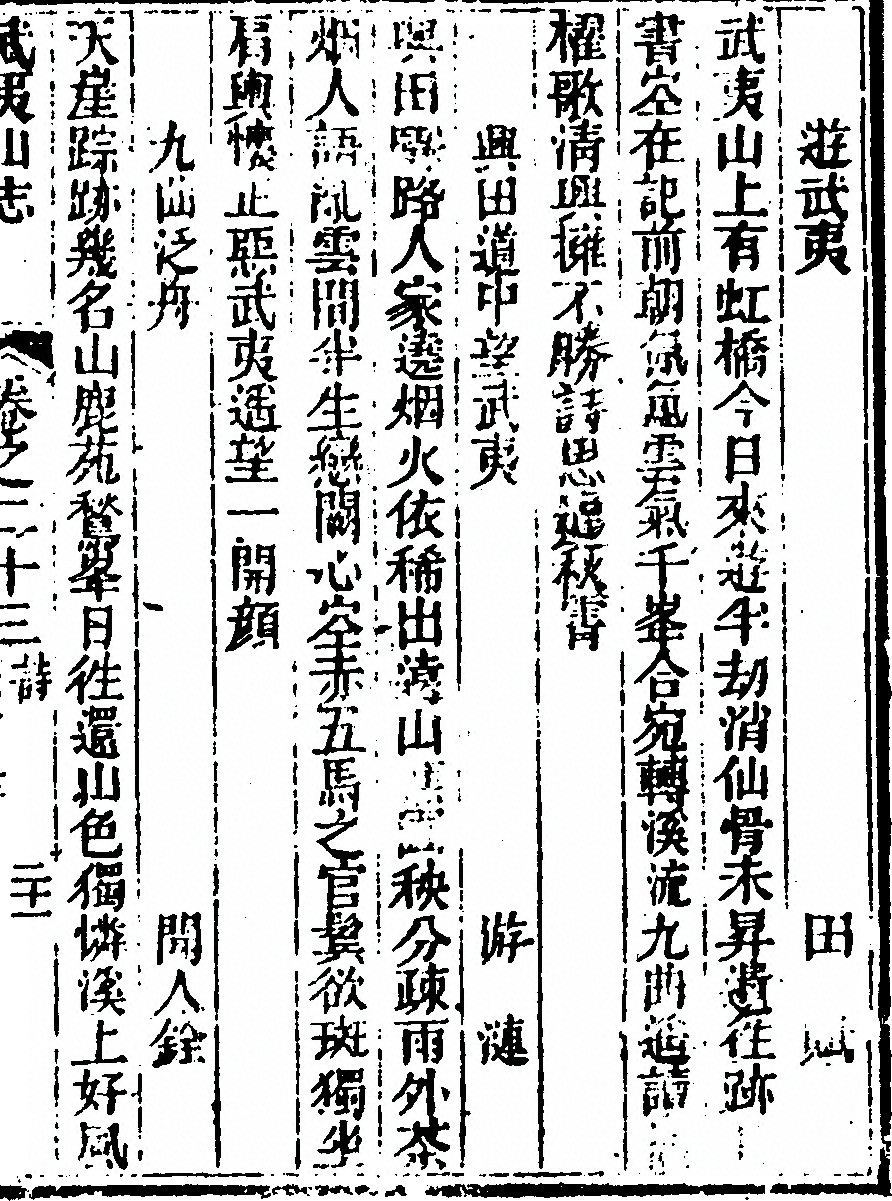 遊武夷 田賦
武夷山上有虹橋今日來遊半劫消仙骨未昇遊往跡
書空在記前朝氤氳雲氣千峯合宛轉溪流九曲遥請
櫂歌清興擁不勝詩思逼秋霄
興田道中望武夷 游漣
興田驛路人家遶烟火依稀出海山秧分疎雨外茶
烟人語亂雲間半生戀闕心空赤五馬之官鬢欲斑獨坐
肩輿懷正惡武夷遥望一開顔
九仙泛舟 聞人銓
天崖踪跡幾名山鹿苑鰲峯日往還山色獨憐溪上好風
武夷山志 卷之二十三 詩 二十一